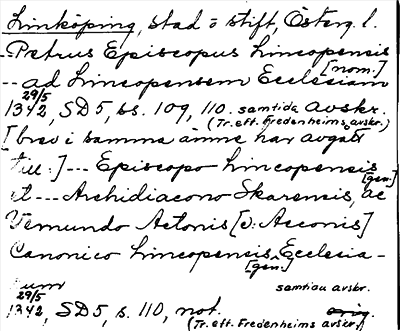 Linköping, stad o stift, Österg. l.
--Petrus Episcopus Lincopensis
[nom.]
--- ad Lincopensem Ecclesiam
29/5
1342, SD5, ss. 109, 110. samtida avskr.
(Tr. eft. Fredenheims avskr.)
[brev i samma ämne har avgått
till:] --- Episcopo Lincopensis
[gen.]
et --- Archidiacono Skarensis, ac
Vemundo Actonis [o: Acconis]
Canonico Lincopensis Ecclesia-
[gen.]
rum samtida avskr.
29/5
1342, SD5, s. 110, not. orig.
(Tr. eft. Fredenheims avskr.)